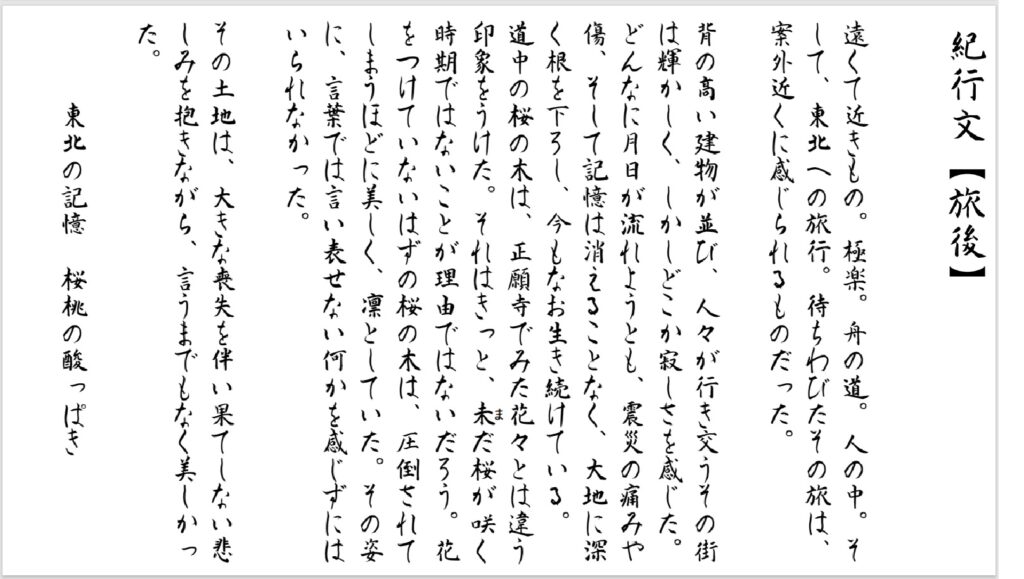 紀行文【旅後】
遠くて近きもの。極楽。舟の道。人の中。そ
して、東北への旅行。待ちわびたその旅は、
案外近くに感じられるものだった。
背の高い建物が並び、人々が行き交うその街
は輝かしく、しかしどこか寂しさを感じた。
どんなに月日が流れようとも、震災の痛みや
傷、そして記憶は消えることなく、大地に深
く根を下ろし、今もなお生き続けている。
道中の桜の木は、正願寺でみた花々とは違う
印象をうけた。それはきっと、未だ桜が咲く
ま
時期ではないことが理由ではないだろう。花
をつけていないはずの桜の木は、圧倒されて
しまうほどに美しく、凛としていた。その姿
に、言葉では言い表せない何かを感じずには
いられなかった。
その土地は、大きな喪失を伴い果てしない悲
しみを抱きながら、言うまでもなく美しかっ
た。
東北の記憶　桜桃の酸っぱき